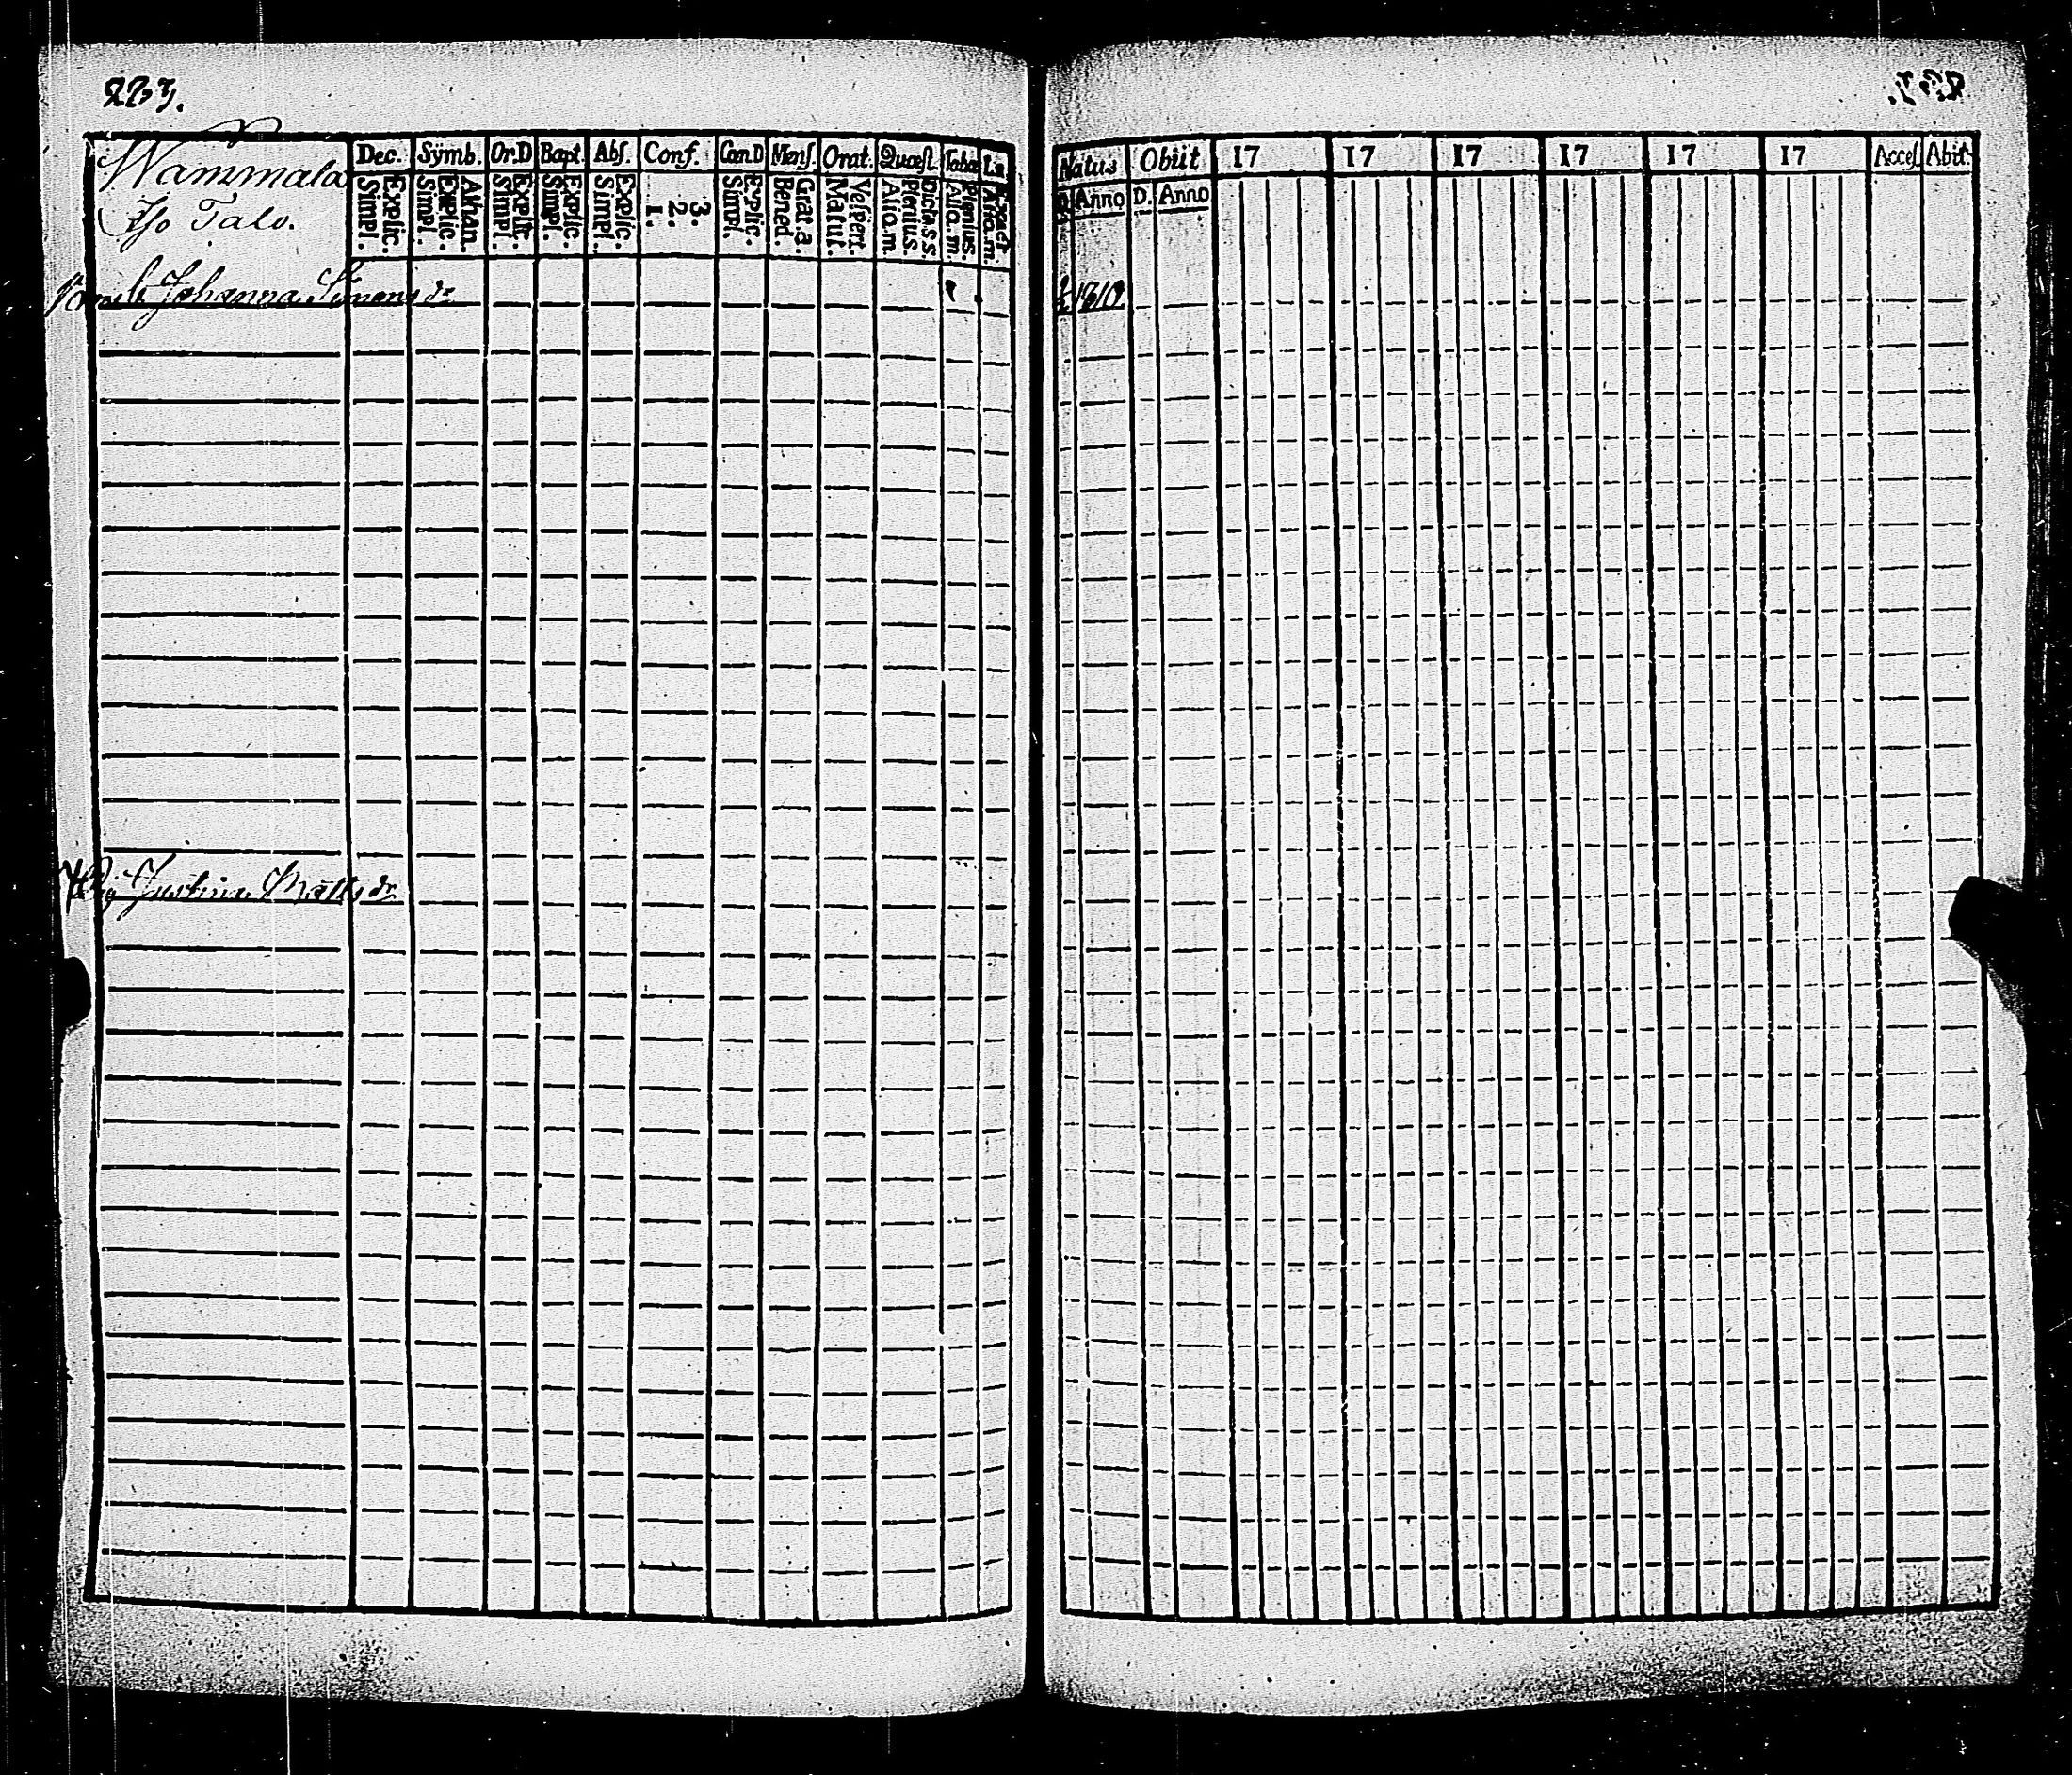 223.
Wammala
Iso Talo.
Dec. Symb. Or.D Bapt. Abſ. Conf. Cœn.D Menſ. Orat. Quæſt. Tabæ
Explic. Simpl. Athan. Explic. Simpl. Explic. Simpl. Explic. Simpl. Explic. Simpl. 3. 2. 1. Explic. Simpl. Grat.a. Bened. Veſpert. Matut. Dicta.s.s. Plenius. Aſſa.m Plenius. Aſſa.m. Exact Aſſa.m.
Johanna Simons dr
Justina Matts dr
Natus Obiit 17 17 17 17 17 17 Acceſ Abiit
D Anno D. Anno
1810